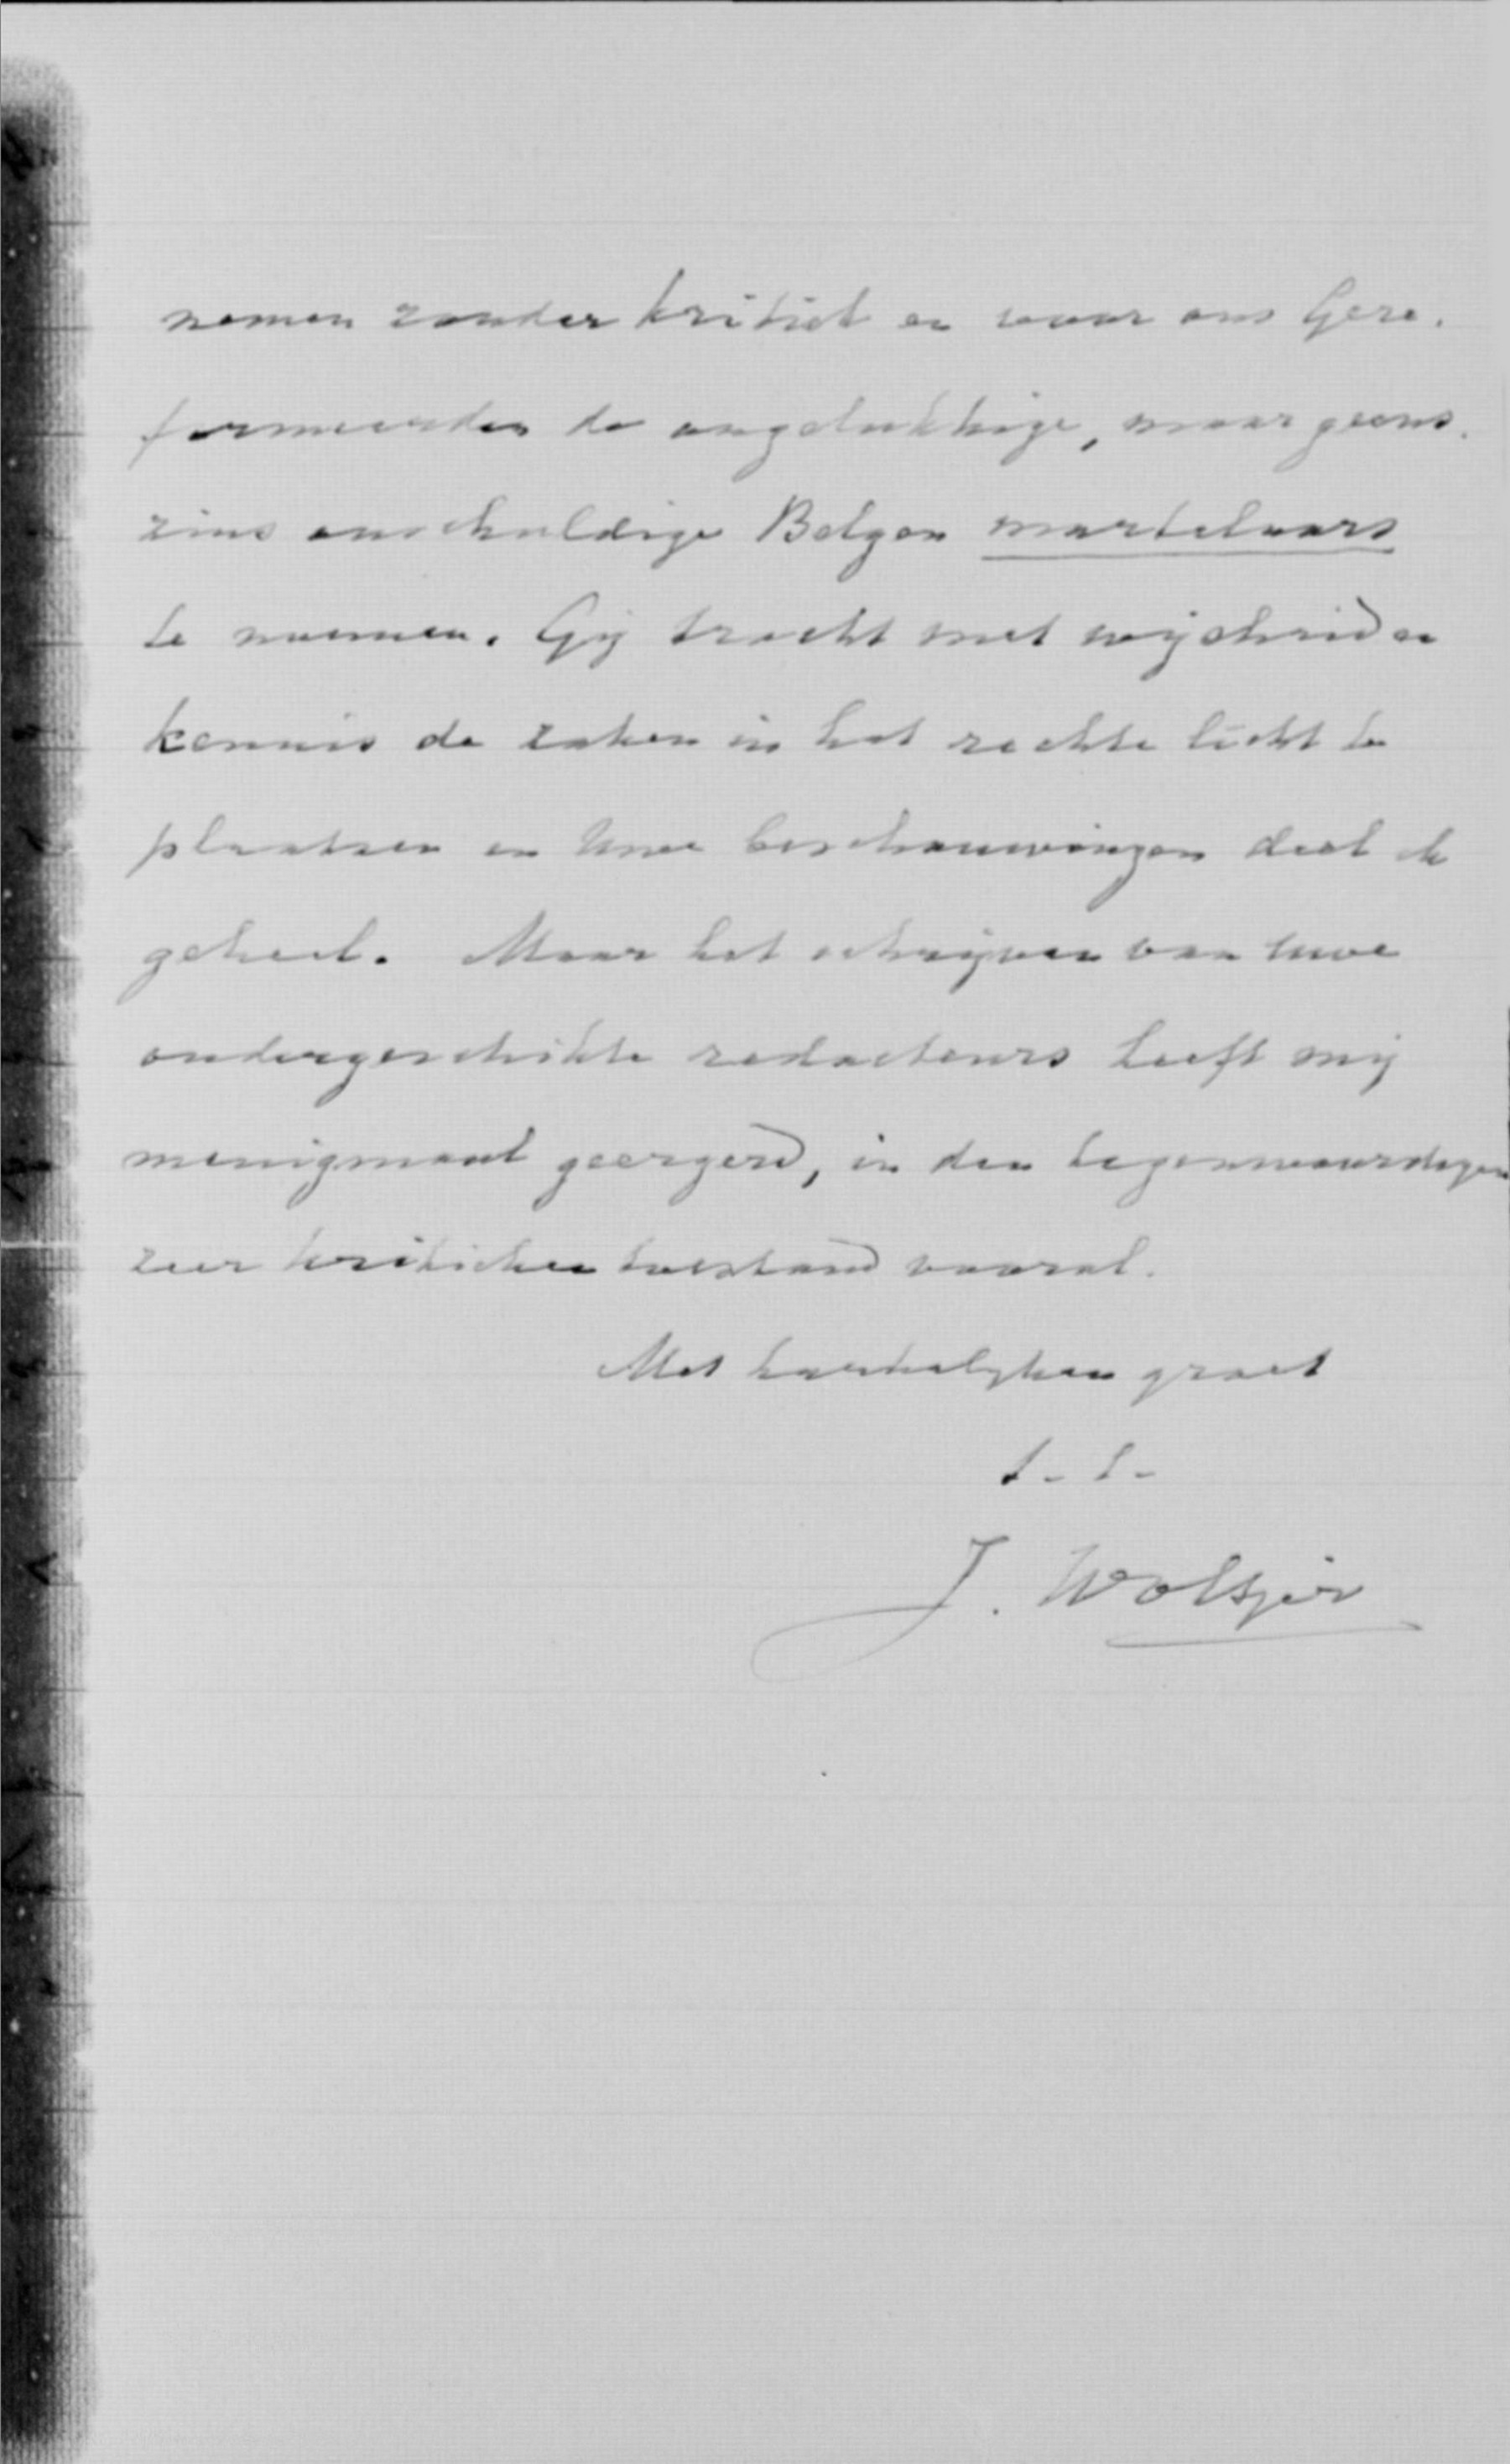 nemen zonder kritiek en voor ons Gere.
formeerden de ongelukkige, maar geens.
zins onschuldige Belgen martelaars
te noemen. Gij tracht met wijsheid en
kennis de zaken in het rechte licht te
plaatsen en Uwe beschouwingen deel ik
geheel. Maar het schrijven van Uwe
ondergeschikte redacteurs heeft mij
menigmaal geergerd, in den tegenwoordigen
zeer kritieken toestand vooral.
Met hartelijken groet
t. t.
J. Woltjer